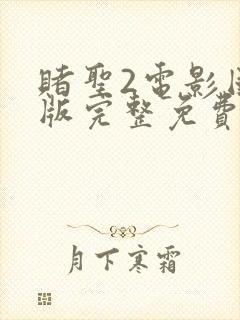 賭聖2電影
版完整免費
月下寒霜